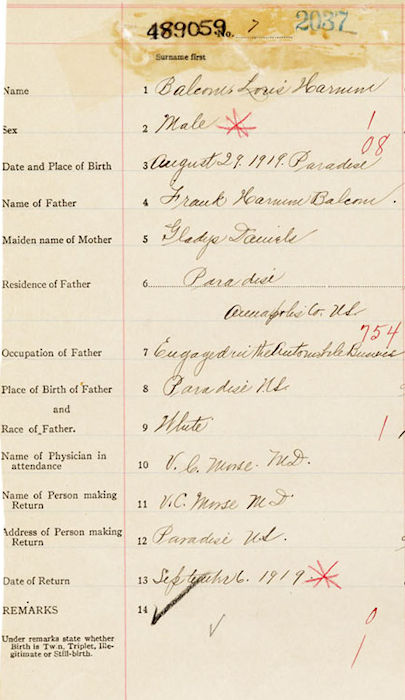 489059 No. 7 2037
Surname first
Name 1 Balcom, Louis Harnum
Sex 2 Male 1
08
Date and Place of Birth 3 August 29. 1919. Paradise
Name of Father 4 Frank Harnum Balcom.
Maiden name of Mother 5 Gladys Daniels
Residence of Father 6 Paradise
Annapolis Co. N.S.
754
Occupation of Father 7 Engaged in the Automobile Business
Place of Birth of Father 8 Paradise N.S.
and
Race of Father. 9 White 1
Name of Physician in
attendance 10 V. C. Morse. M.D.
Name of Person making
Return 11 V. C. Morse M D
Address of Person making
Return 12 Paradise N.S.
Date of Return 13 September 6. 1919.
REMARKS 14
0
Under remarks state whether
Birth is Twin, Triplet, Ille-
gitimate or Still-birth.
1